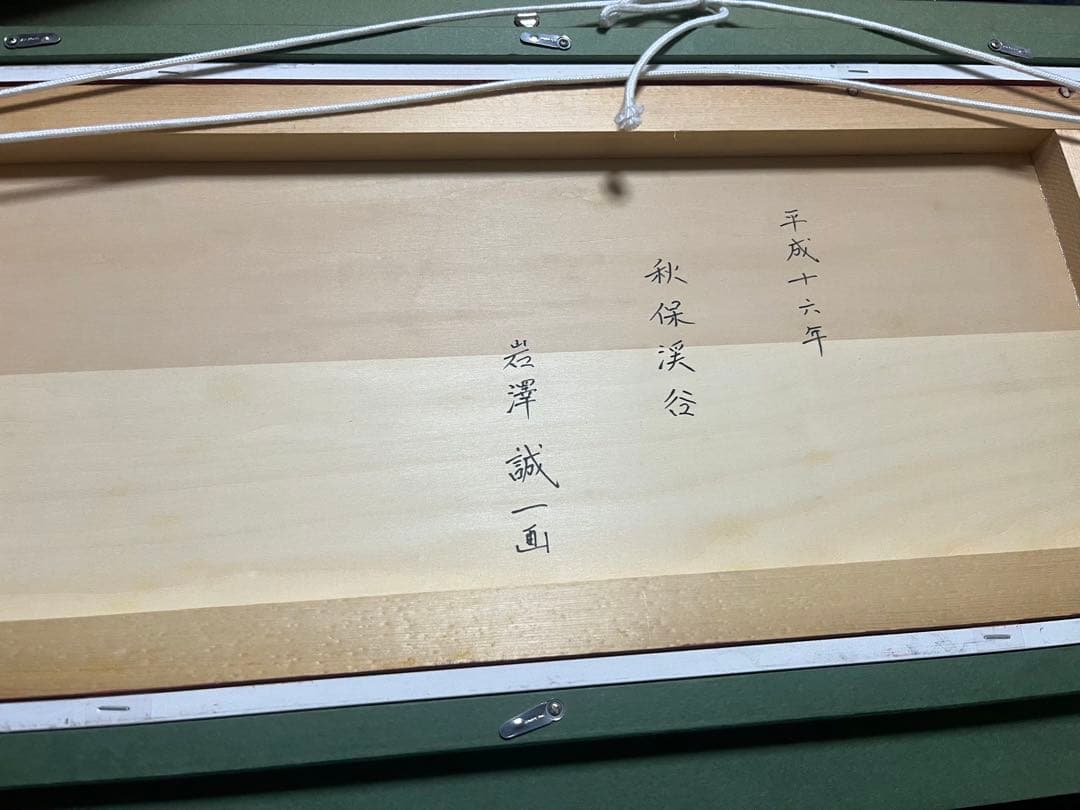 平成十六年
秋保渓谷
岩澤 誠一画